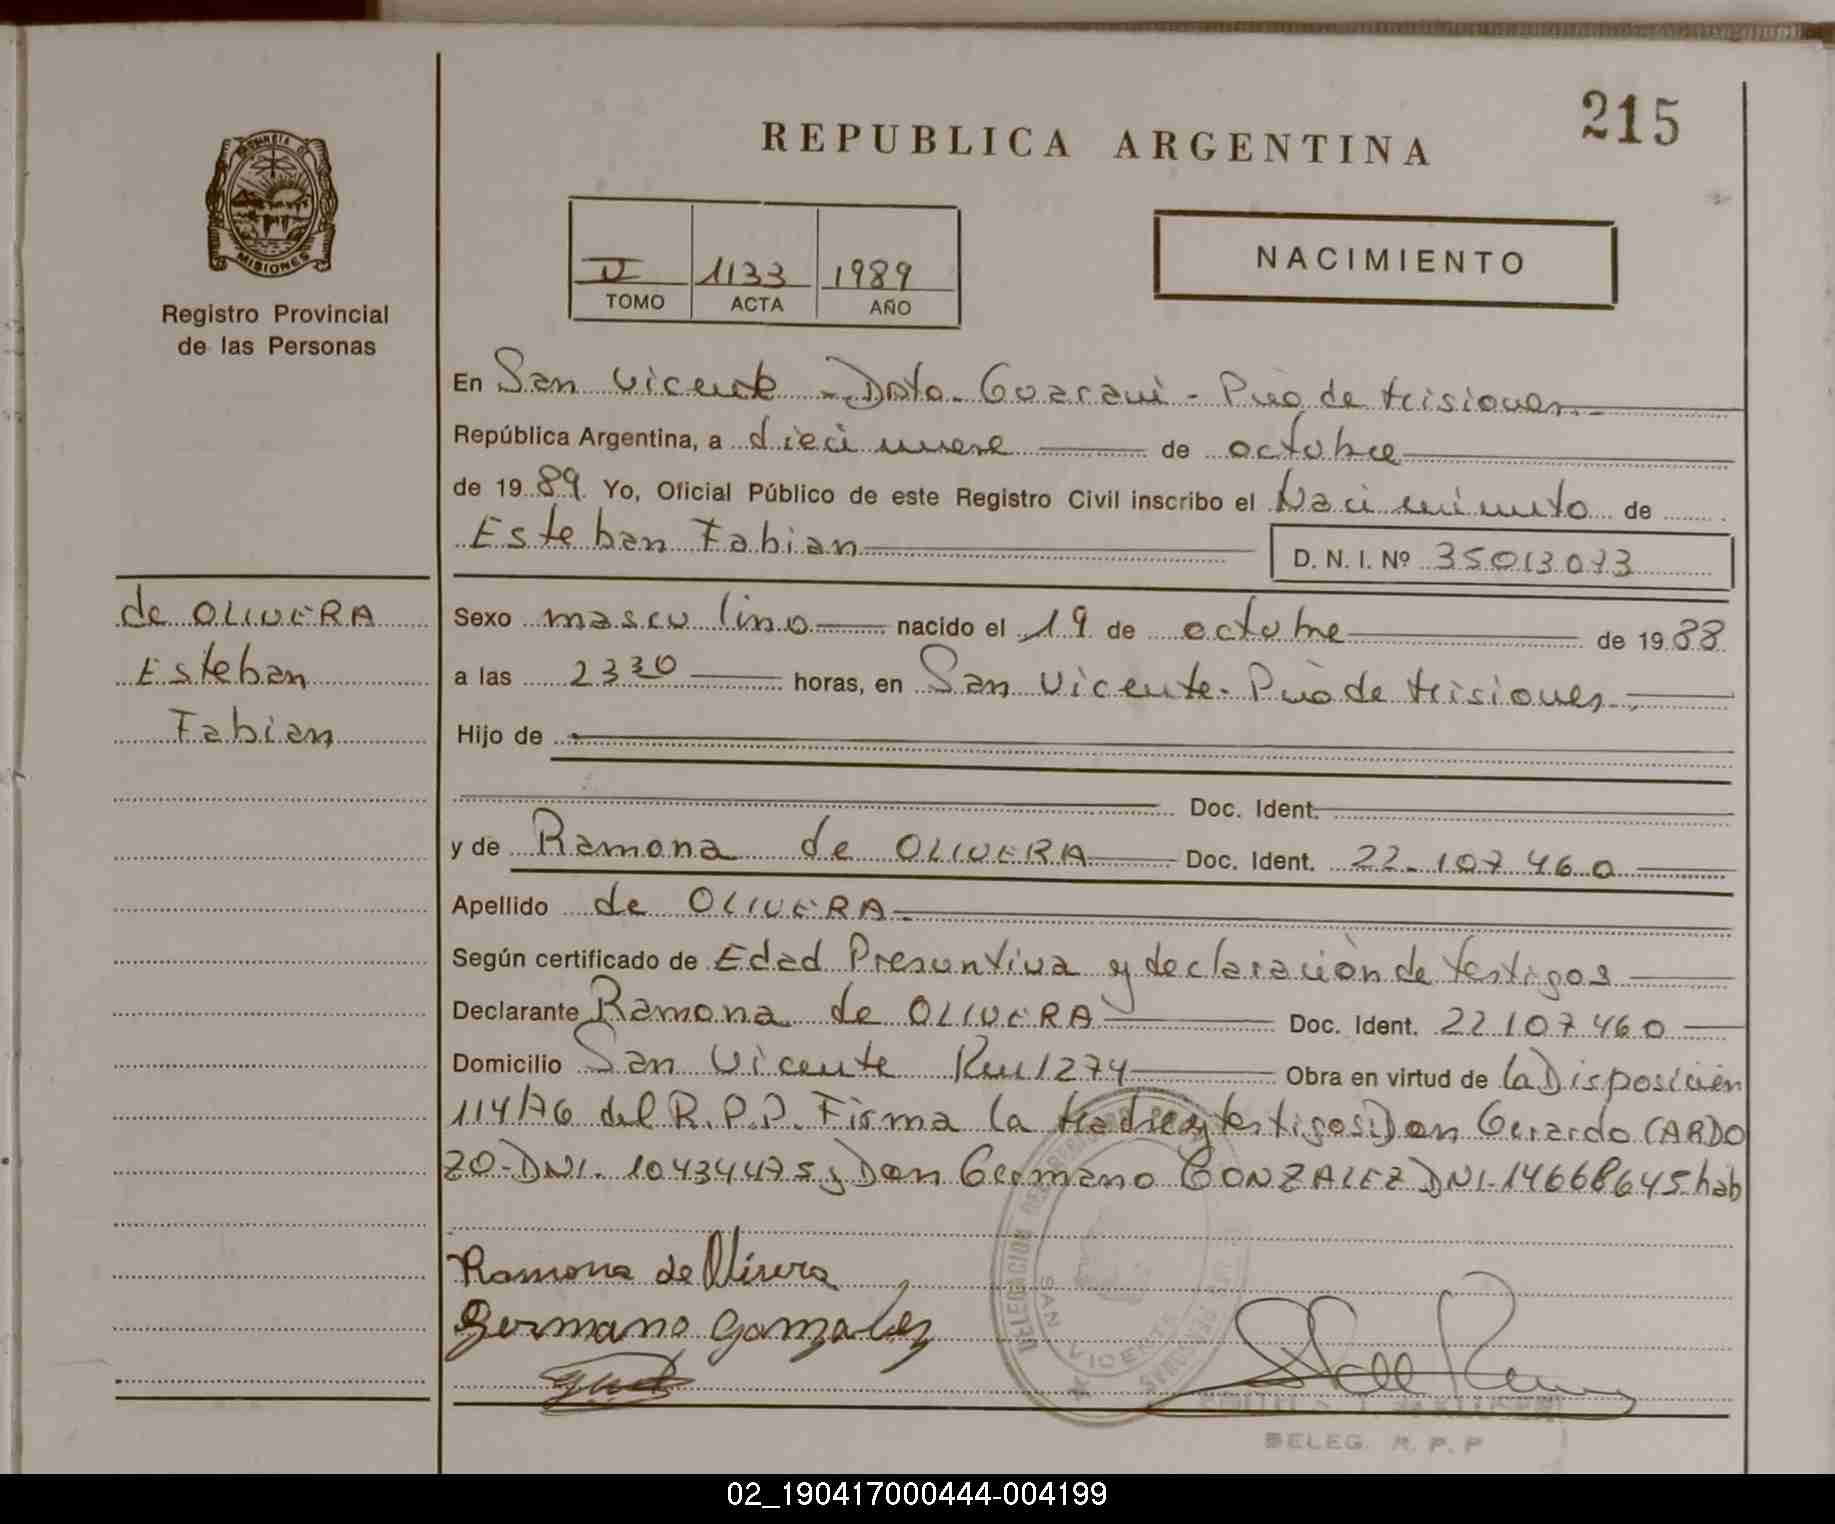 215
REPUBLICA ARGENTINA
PROVINCIA DE
MISIONES
Registro Provincial
de las Personas
1133 1989
TOMO ACTA AÑO
NACIMIENTO
En San Vicente - Dpto. Guarani - Pcia de Misiones
República Argentina, a diecinueve de octubre
de 1989. Yo, Oficial Público de este Registro Civil inscribo el Nacimiento de
Esteban Fabian
D. N. I. Nº 35013073
de OLIVERA
Esteban
Fabian
Sexo masculino nacido el 19 de octubre de 1988
a las 2330 horas, en San Vicente - Pcia de Misiones
Hijo de
Doc. Ident.
y de Ramona de OLIVERA Doc. Ident. 22.107.460
Apellido de OLIVERA
Según certificado de Edad Presuntiva y declaración de testigos
Declarante Ramona de OLIVERA Doc. Ident. 22107460
Domicilio San Vicente Km 1274 Obra en virtud de la Disposición
114/76 del R.P.P. Firma la Madre y testigos Don Gerardo CARDO
ZO-DNI. 10434475 y Don Germano GONZALEZ DNI-14668645 hab
Ramona de Olivera
Germano Gonzalez
DELEGACION
SAN VICENTE
MISIONES
DELEG. R. P. P
02_190417000444-004199